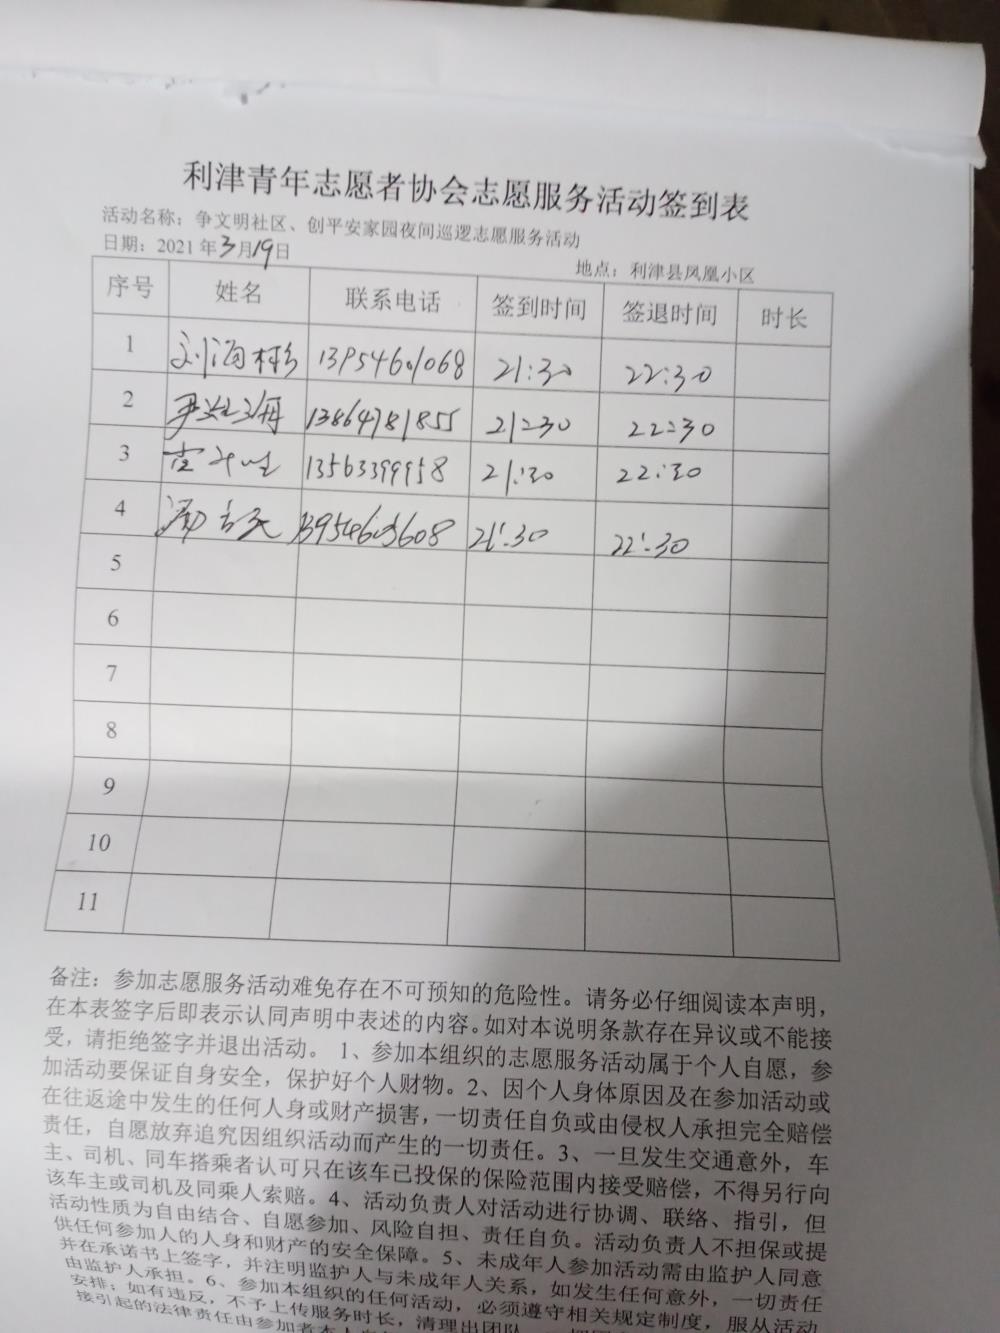 利津青年志愿者协会志愿服务活动签到表
活动名称：争文明社区、创平安家园夜间巡逻志愿服务活动
日期：2021年3月19日
地点：利津县凤凰小区
序号 姓名 联系电话 签到时间 签退时间 时长
1 刘海彬 13954601068 21:30 22:30
2 13864781855 21:30 22:30
3 13563399958 21:30 22:30
4 13954605608 21:30 22:30
5
6
7
8
9
10
11
备注：参加志愿服务活动难免存在不可预知的危险性。请务必仔细阅读本声明，
在本表签字后即表示认同声明中表述的内容。如对本说明条款存在异议或不能接
受，请拒绝签字并退出活动。 1、参加本组织的志愿服务活动属于个人自愿，参
加活动要保证自身安全，保护好个人财物。2、因个人身体原因及在参加活动或
在往返途中发生的任何人身或财产损害，一切责任自负或由侵权人承担完全赔偿
责任，自愿放弃追究因组织活动而产生的一切责任。3、一旦发生交通意外，车
主、司机、同车搭乘者认可只在该车已投保的保险范围内接受赔偿，不得另行向
该车主或司机及同乘人索赔。4、活动负责人对活动进行协调、联络、指引，但
活动性质为自由结合、自愿参加、风险自担、责任自负。活动负责人不担保或提
供任何参加人的人身和财产的安全保障。5、未成年人参加活动需由监护人同意
并在承诺书上签字，并注明监护人与未成年人关系，如发生任何意外，一切责任
由监护人承担。6、参加本组织的任何活动，必须遵守相关规定制度，服从活动
安排；如有违反，不予上传服务时长，清理出团队
接引起的法律责任由参加者本人